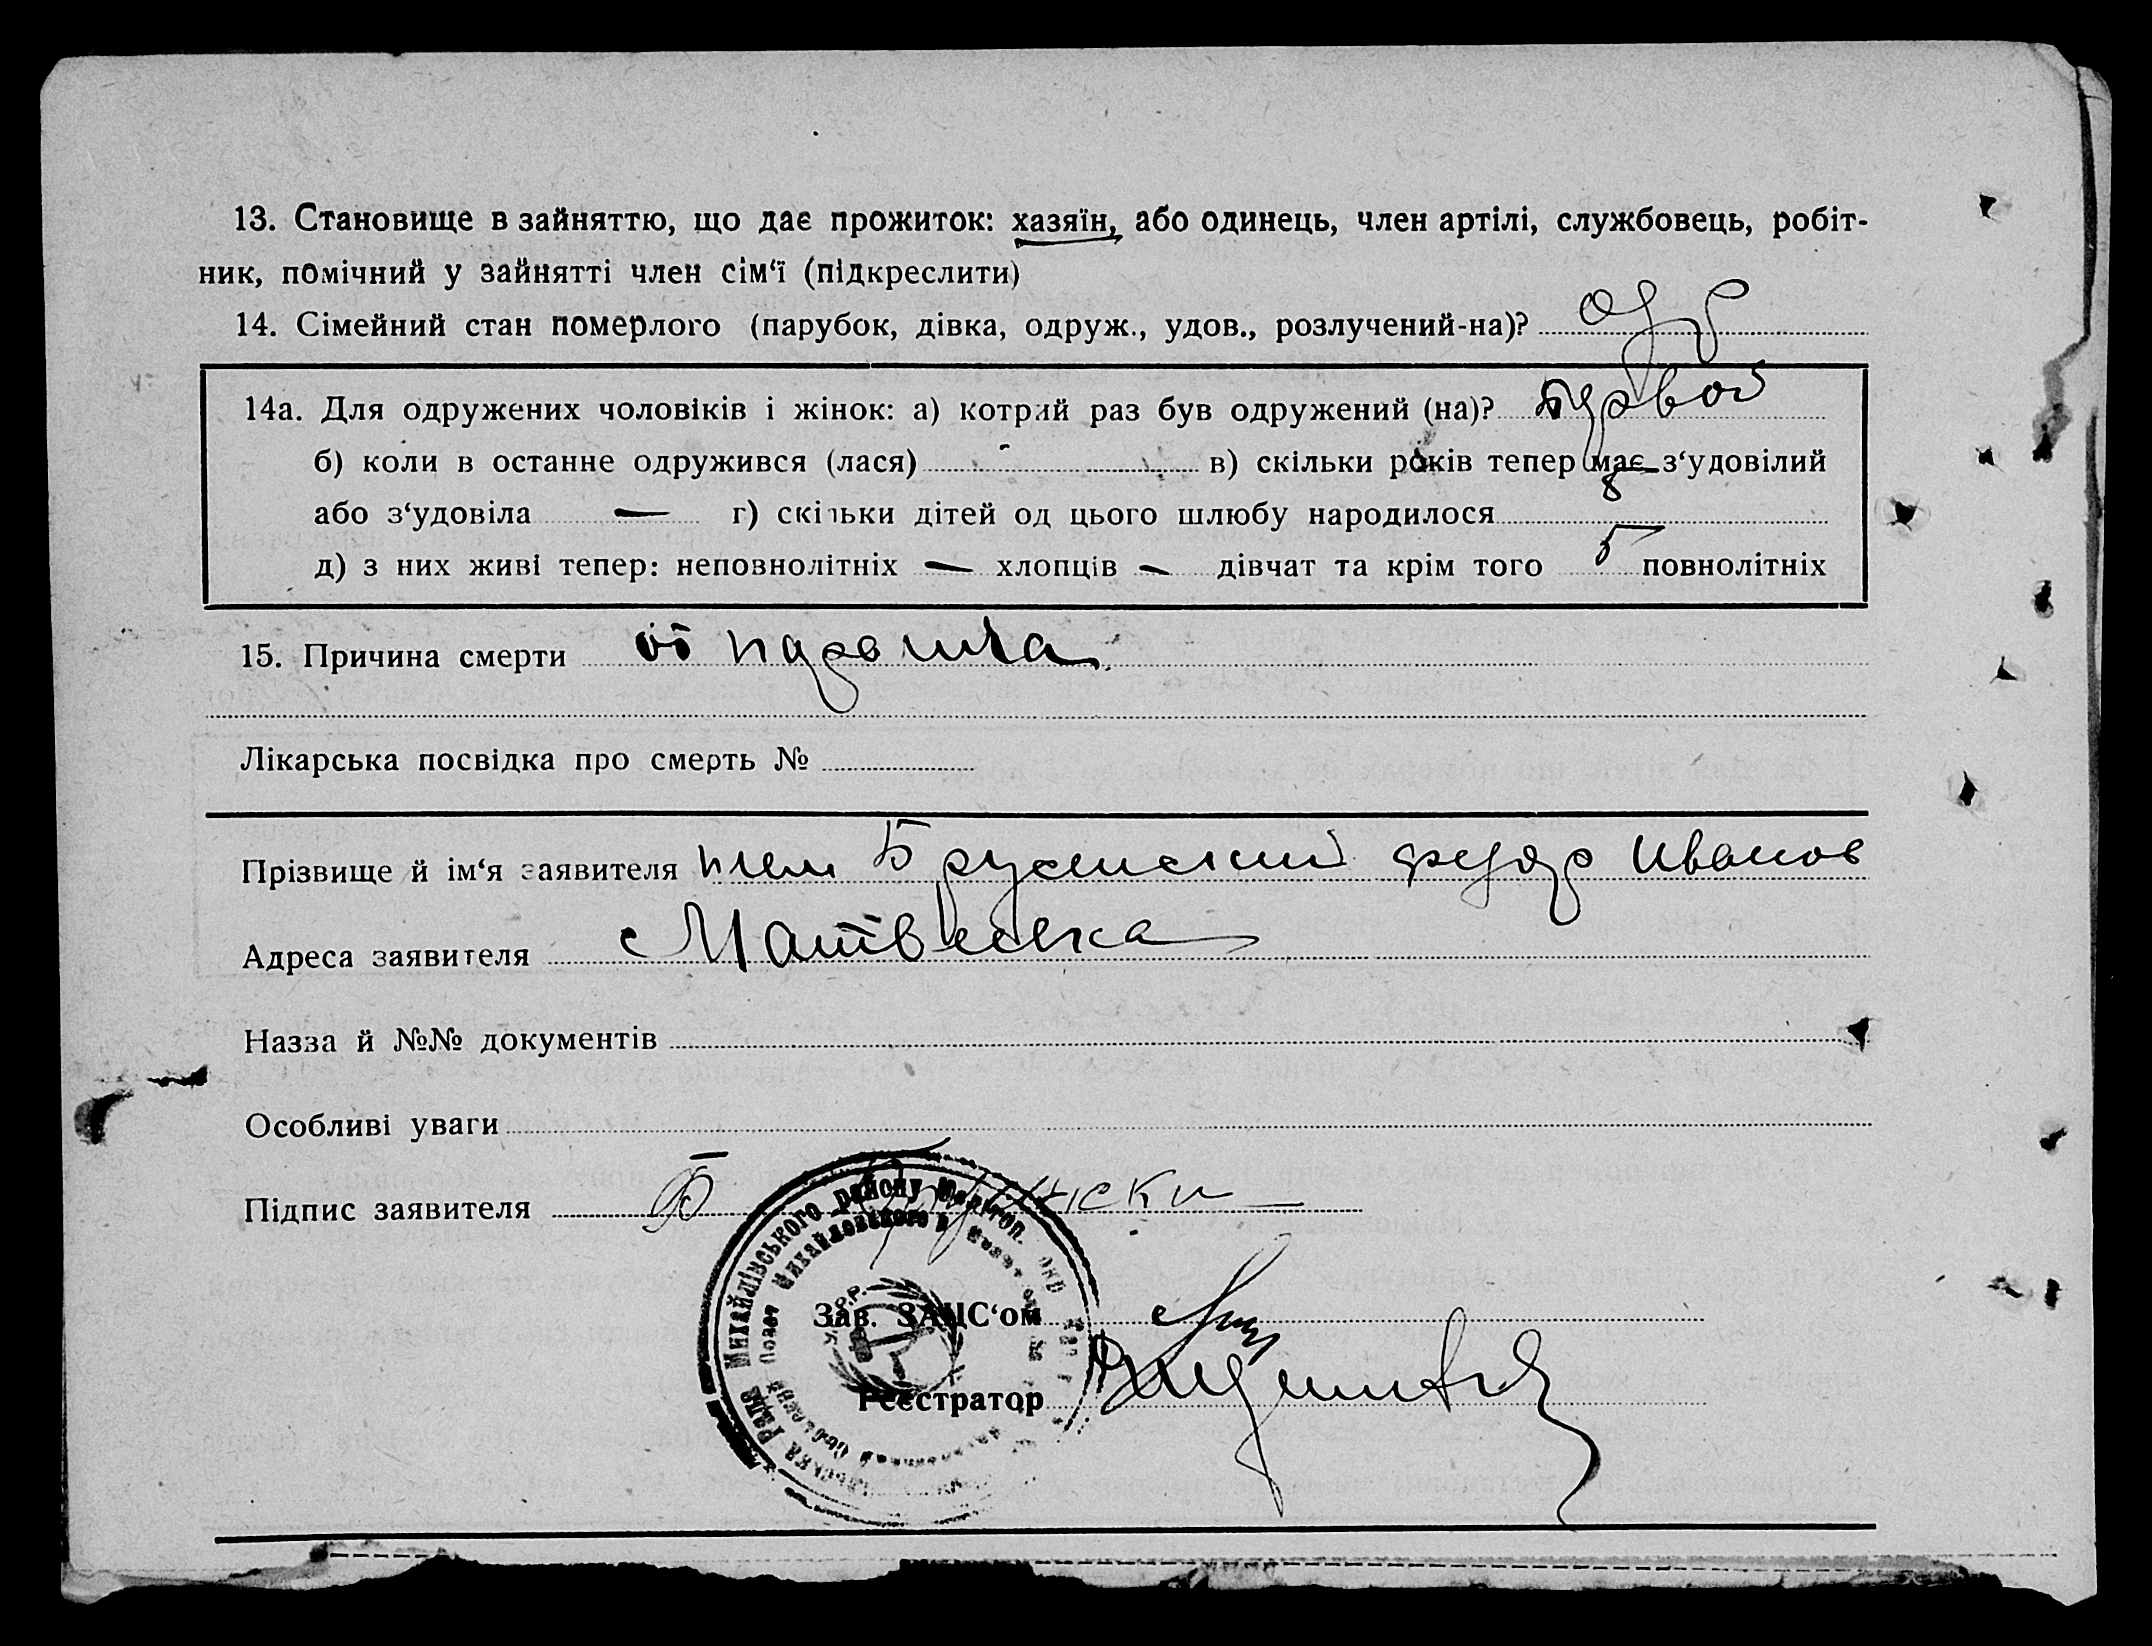 13. Становище в зайняттю, що дає прожиток: хазяїн, або одинець, член артілі, службовець, робіт-
ник, помічний у зайнятті член сім‘ї (підкреслити)
14. Сімейний стан померлого (парубок, дівка, одруж., удов., розлучений-на)? одр
14а. Для одружених чоловіків і жінок: а) котрий раз був одружений (на)? первой
б) коли в останне одружився (лася) в) скільки років тепер має з‘удовілий
або з‘удовіла — г) скільки дітей од цього шлюбу народилося 8
д) з них живі тепер: неповнолітніх — хлопців — дівчат та крім того 5 повнолітніх
15. Причина смерти от
Лікарська посвідка про смерть №
Прізвище й ім‘я заявителя Федор Иванов
Адреса заявителя с Матвеевка
Назва й №№ документів
Особливі уваги
Підпис заявителя
Михайлівського району Маріюп. окр
Михайловского
Зав. ЗАЦС‘ом
Реєстратор